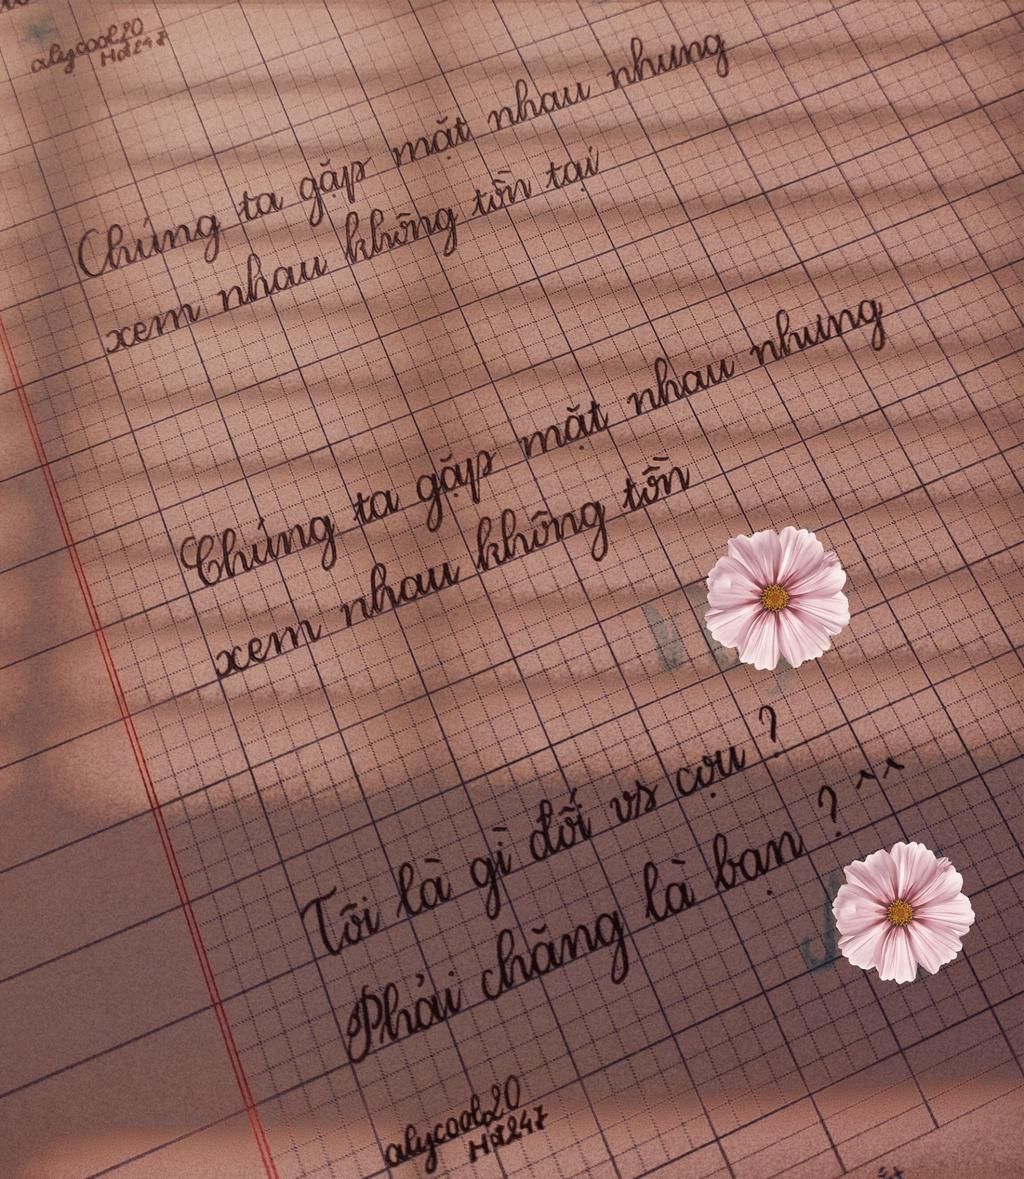 alycool20
Hd247
Chúng ta gặp mặt nhau nhưng
xem nhau không tồn tại
Chúng ta gặp mặt nhau nhưng
xem nhau không tồn
Tôi là gì đối vs cựu ?
Phải chăng là bạn ? ^^
alycool20
Hd247